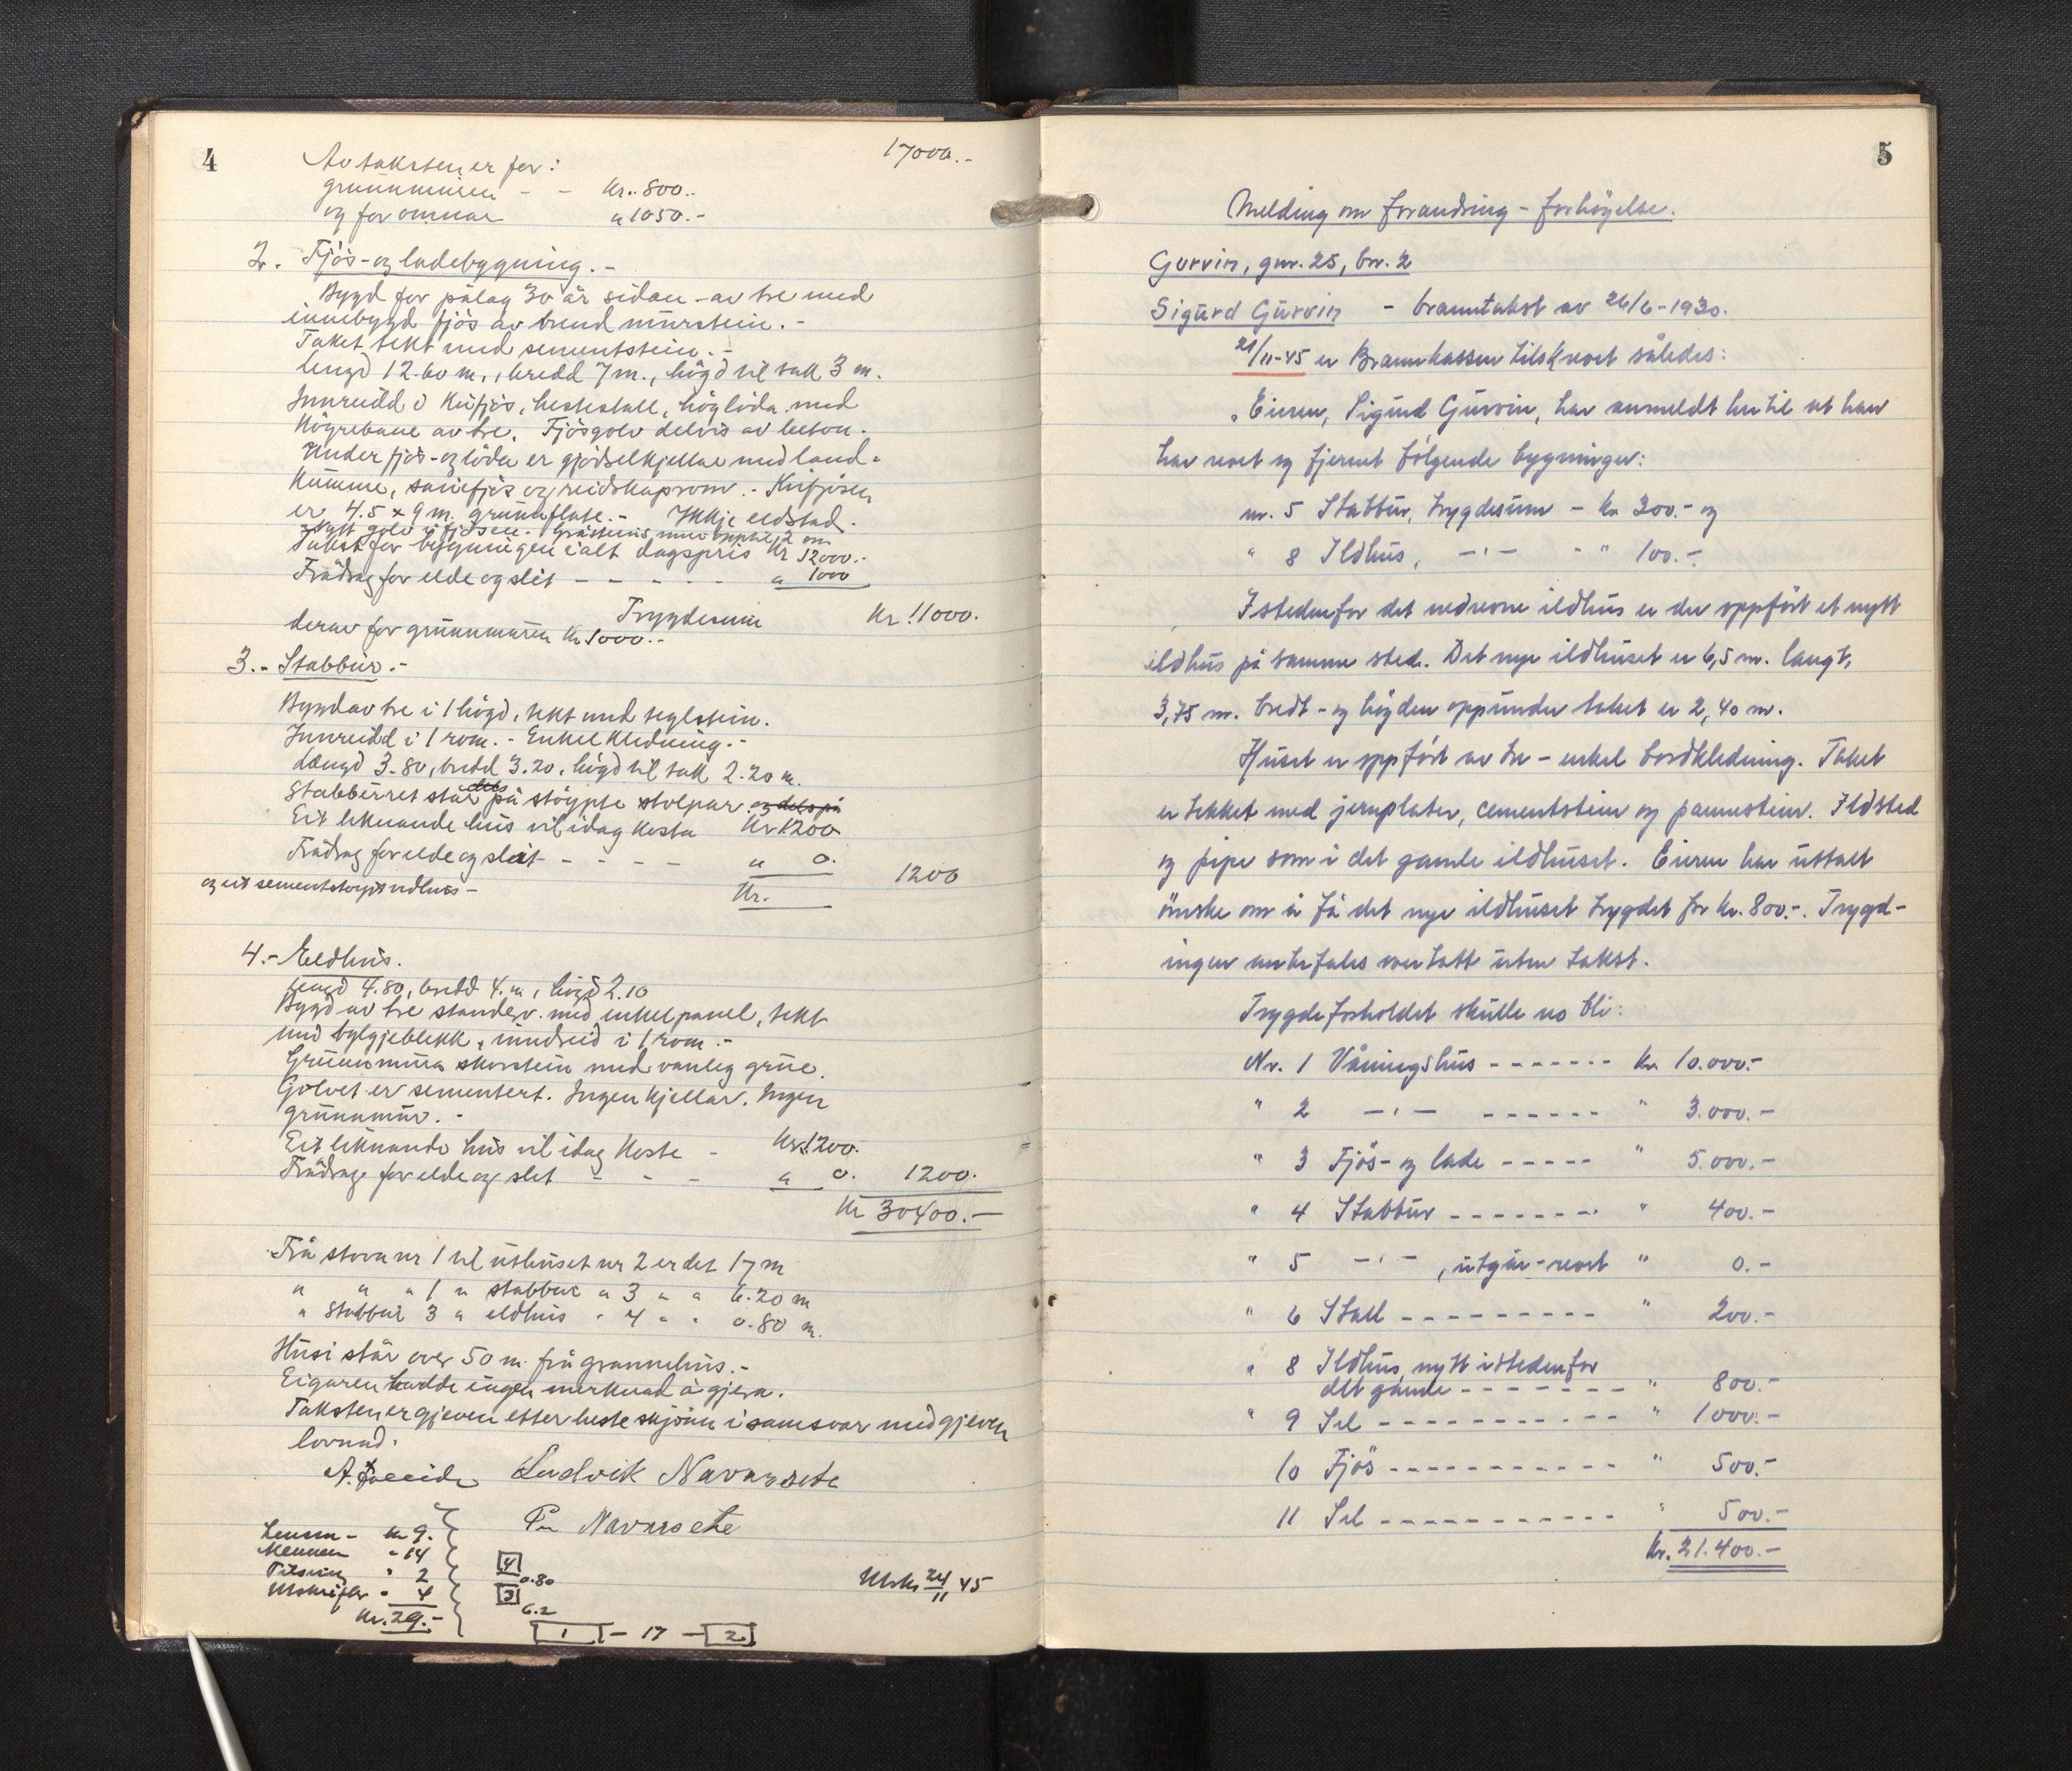 4
17000.-
Av taksten er for:
grunnmuren - - Kr. 800.-
og for omnar " 1050.-
2. Fjös- og ladebygning.-
Bygd for pålag 30 år sidan - av tre med
innebygd fjös av brend murstein.-
Taket tekt med sementstein.-
Lengd 12.60 m., bredd 7 m., högd til tak 3 m.
Innreidd i Kufjös, hestestall, höglöda med
Högrebane av tre. Fjösgolv delvis av beton.
Under fjös- og löda er gjödselkjellar med land-
Kumme, sauefjös og reidskapsrom.- Kufjösen
er 4.5 x 9 m. grunnflate.- Ikkje eldstad.
Nytt golv i fjösen. Gråsteins mur
Takst for bygningen i alt dagspris Kr 12000.-
Frådrag for elde og slit - - - - - " 1000
Trygdesum Kr. 11000.
derav for grunnmuren Kr 1000.-
3.- Stabbur.-
Bygd av tre i 1 högd, tekt med teglstein.
Innreidd i 1 rom.- Enkel kledning.-
Længd 3.80, bredd 3.20, högd til tak 2.20 m.
Stabburet står dels på stöypte stolpar og dels på
Eit liknande hus vil idag Kosta Kr 1200
Frådrag for elde og slit - - - - " 0. 1200
og eit sementstöypt vedhus - Kr.
4.- Eldhus.
Lengd 4.80, bredd 4. m, högd 2.10
Bygd av tre standerv. med enkel panel, tekt
med bylgjeblekk, inndreid i 1 rom.-
Grunnmura skorstein med vanleg grue.
Golvet er sementert. Ingen Kjellar. Ingen
grunnmur.-
Eit liknande hus vil idag Koste - Kr. 1200.
Frådrag for elde og slit - - - " 0. 1200.
Kr 30400.-
Frå stova nr 1 til uthuset nr 2 er det 17 m
" " " 1 " stabbur " 3 " " 6.20 m
" Stabbur 3 " eldhus " 4 " " 0.80 m.
Husi står over 50 m. frå grannehus.-
Eigaren hadde ingen merknad å gjera.
Taksten er gjeven etter beste skjönn i samsvar med gjeven
lovnad.
Ludvik Navarsete
Per Navarsete
Lensm - kr 9.
Mennen " 14
Tilsein " 2
Utskrifter " 4
Kr. 29.-
4
0.80
3
6.2
1 - 17 - 2
Utskr 24/11 45
5
Melding om forandring - forhöyelse.
Gurvin, gnr. 25, bnr. 2
Sigurd Gurvin - branntakst av 26/6-1930.
21/11-45 er Brannkassen tilskrevet således:
"Eieren, Sigurd Gurvin, har anmeldt hertil at han
har revet og fjernet fölgende bygninger:
nr. 5 Stabbur, trygdesum - kr 300.- og
" 8 Ildhus, -"- - " " 100.-.
Istedenfor det nedrevne ildhus er der oppfört et nytt
ildhus på samme sted. Det nye ildhuset er 6,5 m. langt,
3,75 m. bredt - og höyden oppunder taket er 2,40 m.
Huset er oppfört av tre - enkel bordkledning. Taket
er tekket med jernplater, cementstein og pannestein. Ildsted
og pipe som i det gamle ildhuset. Eieren har uttalt
önske om å få det nye ildhuset trygdet for Kr. 800.-. Trygd-
ingen anbefales overtatt uten takst.
Trygdeforholdet skulle no bli:
Nr. 1 Våningshus - - - - - - - kr. 10.000.-
" 2 -"- - - - - - - " 3.000.-
" 3 Fjös- og lade - - - - - " 5.000.-
" 4 Stabbur - - - - - - - " 400.-
" 5 -"- , utgår - revet " 0.-
" 6 Stall - - - - - - - - - " 200.-
" 8 Ildhus, nytt istedenfor
det gamle - - - - - - - " 800.-
" 9 Sel - - - - - - - - - - - " 1000.-
10 Fjös - - - - - - - - - - - " 500.-
11 Sel - - - - - - - - - - - " 500.-
Kr. 21.400.-